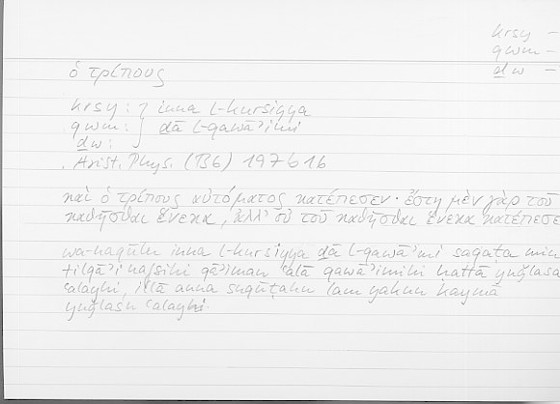 krsy –
qwm –
ḏw –
ὁ τρίπους
krsy : } inna l-kursiyya
qwm : } ḏā l-qawāʾimi
ḏw :
Arist. Phys. (B6) 197b16
καὶ ὁ τρίπους αὐτόματος κατέπεσεν · ἔστη μὲν γὰρ τοῦ
καθῆσθαι ἕνεκα, ἀλλ' οὐ τοῦ καθῆσθαι ἕνεκα κατέπεσε
wa-naqūlu inna l-kursiyya ḏā l-qawāʾimi saqaṭa min
tilqāʾi nafsihi qāʾiman ʿalā qawāʾimihi ḥattā yuǧlasa
ʿalayhi, illā anna suqūṭahu lam yakun kaymā
yuǧlasu ʿalayhi.